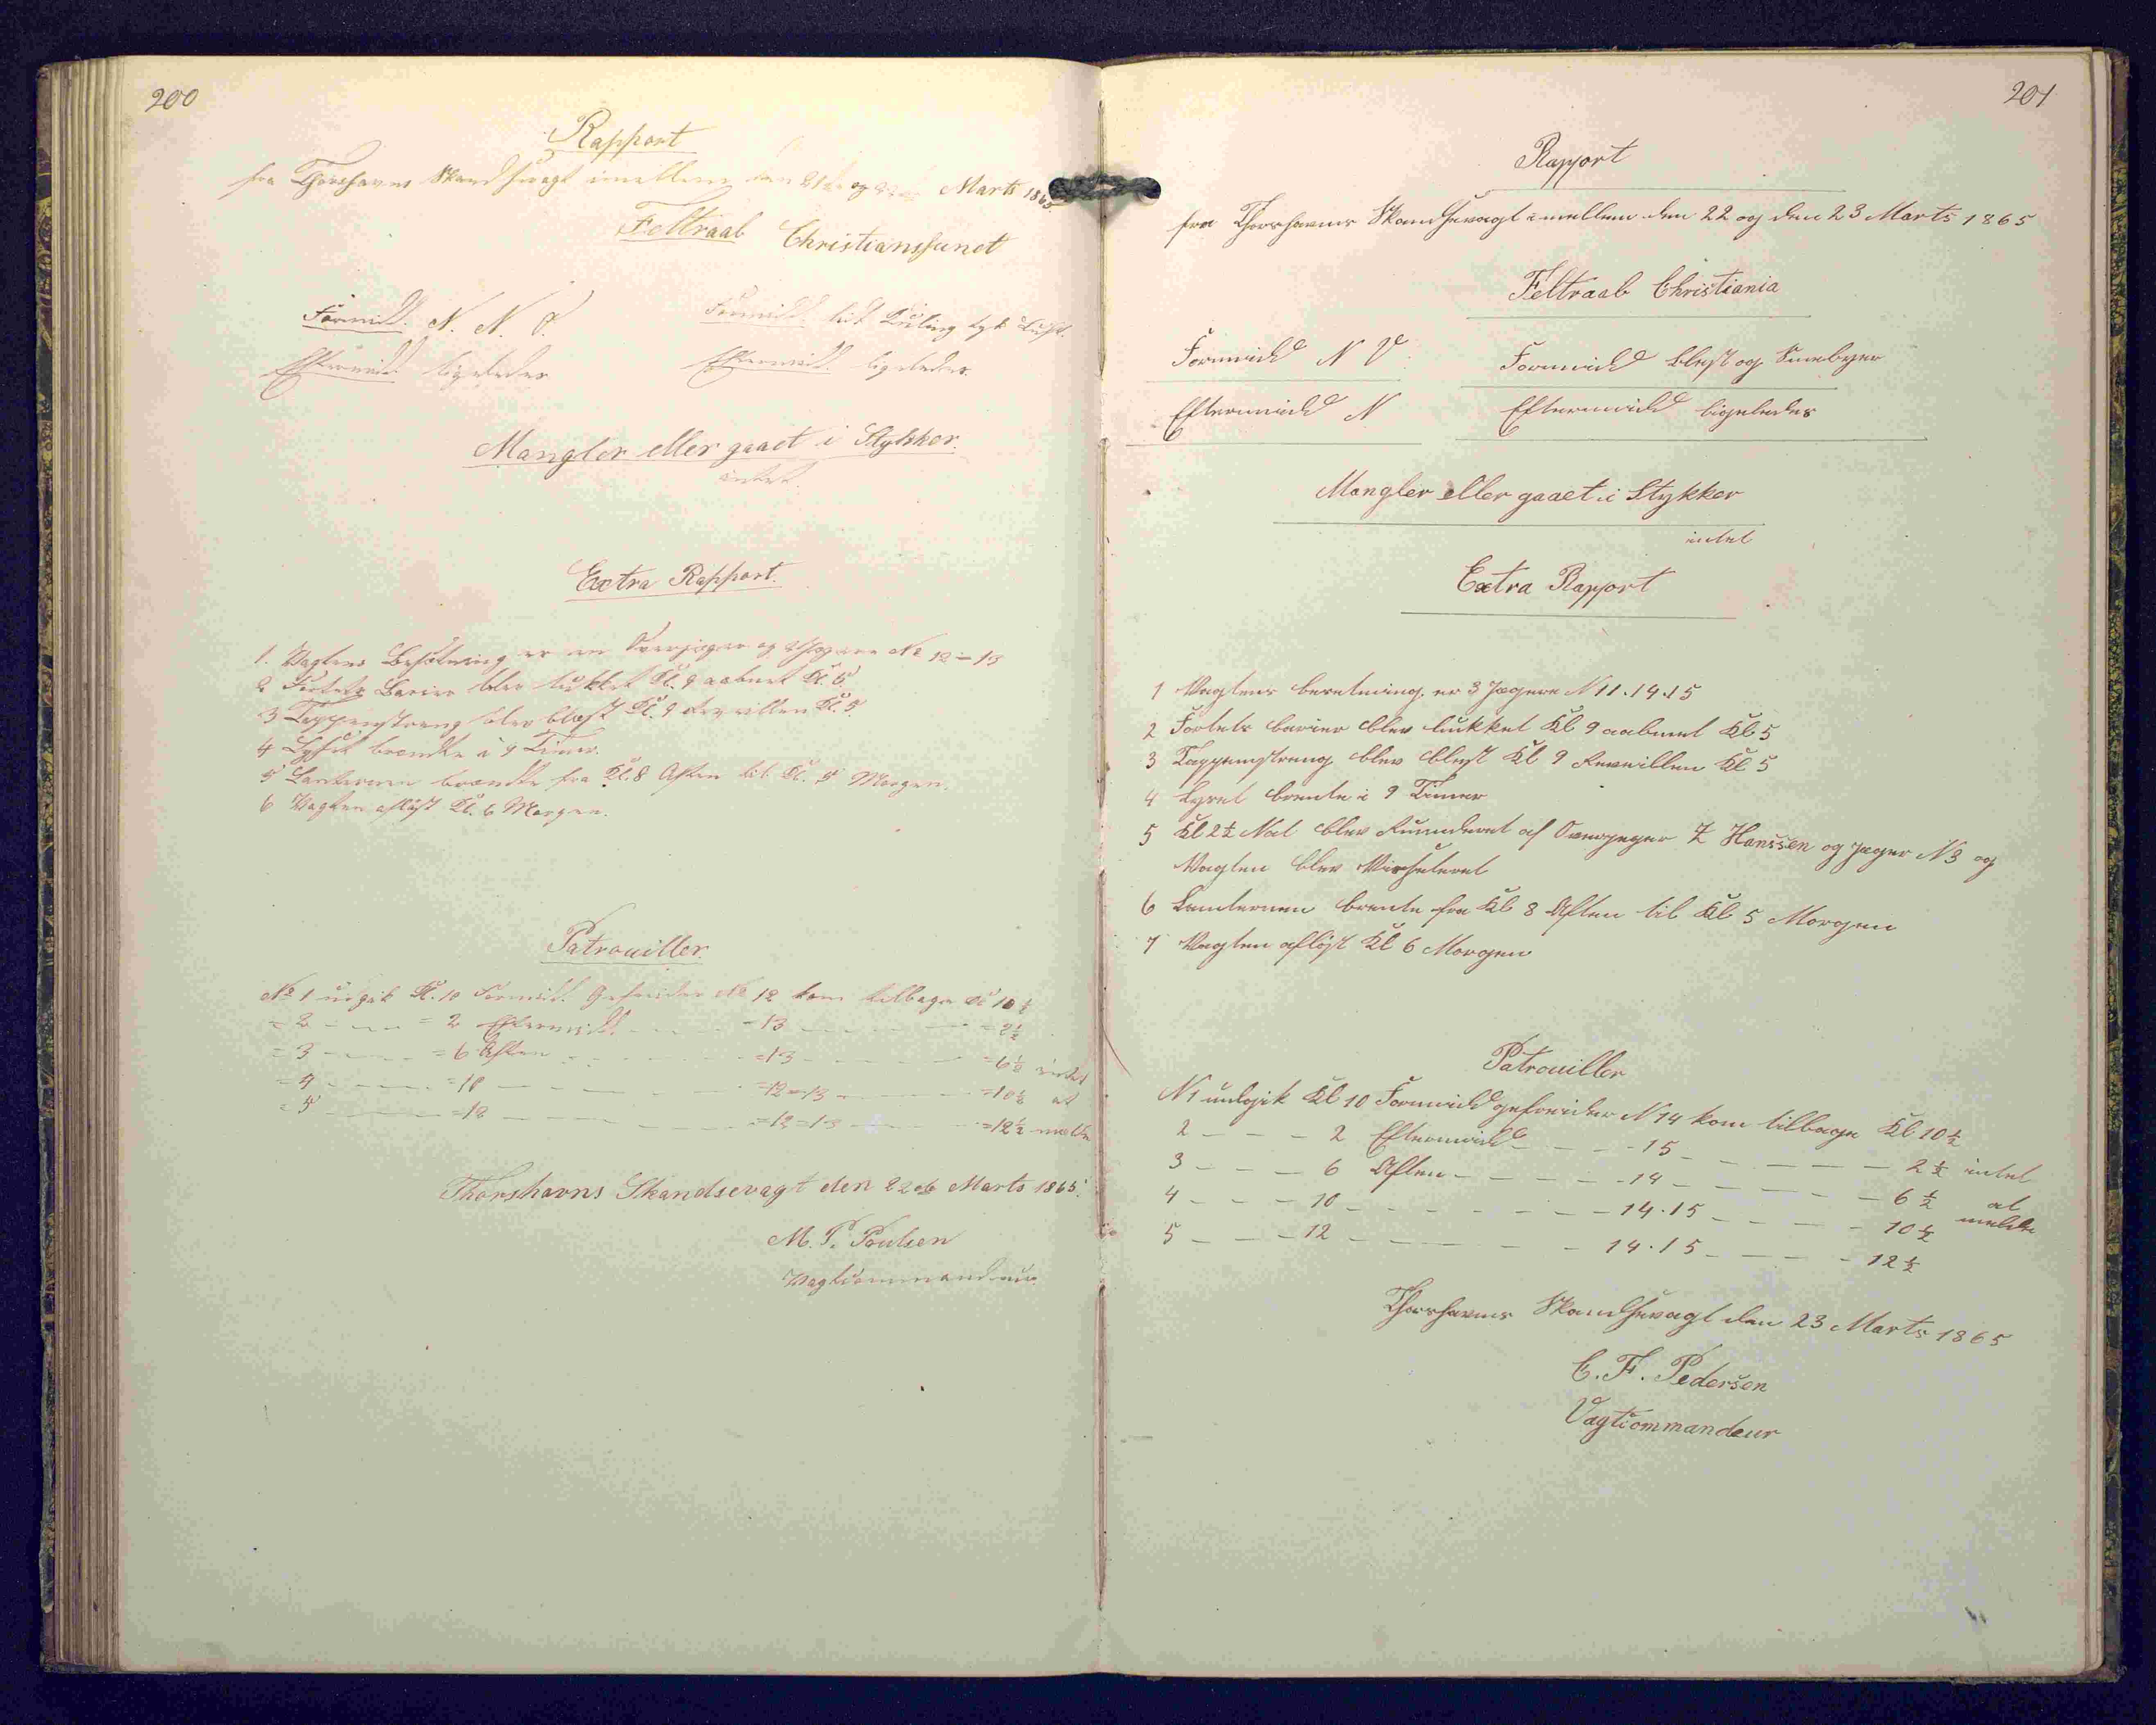 200
Rapport
fra Thorshavns Skandsevagt imellem den 21de og 22de Marts 1865.
Feltraab Christianssund
Formid. N. N. O. Formid. lidt Kuling tyk Luft.
Eftermid. ligeledes Eftermid. ligeledes
Mangler eller gaaet i Stykker.
intet
Extra Rapport.
1. Vagtens Besætning er en Overjæger og Jægere No 12 = 13
2 Fortets Barier blev lukket Kl. 9 aabnet Kl. 5
3 Tappenstreng blev blæst Kl. 9 Revellien Kl. 5.
4 Lyset brændte i 9 Timer.
5 Lanternen brændte fra Kl. 8 Aften til Kl. 5 Morgen.
6 Vagten afløst Kl. 6 Morgen.
Patrouiller.
No 1 udgik Kl. 10 Formid. Gefreider No 12 kom tilbage Kl 10 ½
= 2 - - - = 2 Eftermid. - - - = 13 - - - = 2½
= 3 - - - = 6 Aften - - - = 13 - - - = 6½ intet
= 4 - - - = 10 - - - = 12 = 13 - - - = 10½ at
= 5 - - - = 12 - - - = 12 = 13 - - - = 12½ melde
Thorshavns Skandsevagt den 22de Marts 1865.
M. P. Poulsen
Vagtcommandeur
201
Rapport
fra Thorshavns Skandsevagt imellem den 22 og den 23 Marts 1865
Feltraab Christiania
Formidd N V. Formidd blest og Sneebyer
Eftermidd N Eftermidd ligeledes
Mangler eller gaaet i Stykker
intet
Extra Rapport
1 Vagtens besetning er 3 Jægere N 11. 14. 15
2 Fortets barier blev lukket Kl 9 aabnet Kl 5
3 Tappenstreng blev blest Kl 9 Reveillen Kl 5
4 Lyset brente i 9 Timer
5 Kl 2½ Nat blev Runderet af Overjeger Z Hanssen og Jæger N 3 og
Vagten blev Visiteret
6 Lanternen brente fra Kl 8 Aften til Kl 5 Morgen
7 Vagten afløst Kl 6 Morgen
Patrouiller
N 1 undgik Kl 10 Formidd gefreider N 14 kom tilbage Kl 10½
2 - - - 2 Eftermidd - - - 15 - - - 2½ intet
3 - - - 6 Aften - - - 14 - - - 6½ at
4 - - - 10 - - - 14. 15 - - - 10½ melde
5 - - - 12 - - - 14. 15 - - - 12½
Thorshavns Skandsevagt den 23 Marts 1865
C. F. Pedersen
Vagtcommandeur